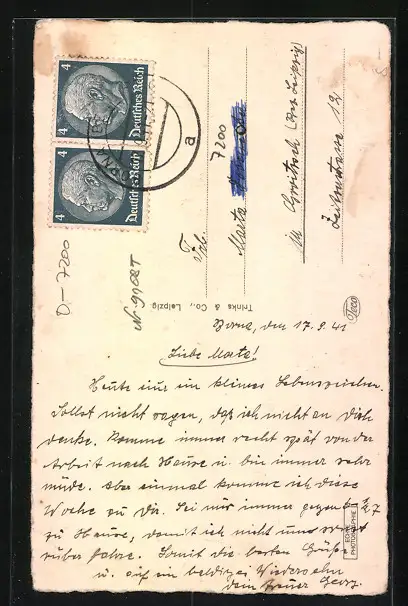 4
Deutsches Reich
4
Deutsches Reich
a
Frl.
Marta
7200
in Groitzsch (Bez. Leipzig)
12
D-7200
Trinks & Co., Leipzig
Borna, den 17.9.41
Liebe Marta!
Heute nur ein kleines Lebenszeichen.
Sollst nicht sagen, daß ich nicht an Dich
denke. Komme immer recht spät von der
Arbeit nach Hause u. bin immer sehr
müde. Aber einmal komme ich diese
Woche zu Dir. Sei nur immer gegen 6-1/2 7
zu Hause, damit ich nicht umsonst
rüber fahre. Somit die besten Grüße
u. auf ein baldiges Wiedersehn
Dein treuer Georg.
ECHTE
PHOTOGRAPHIE